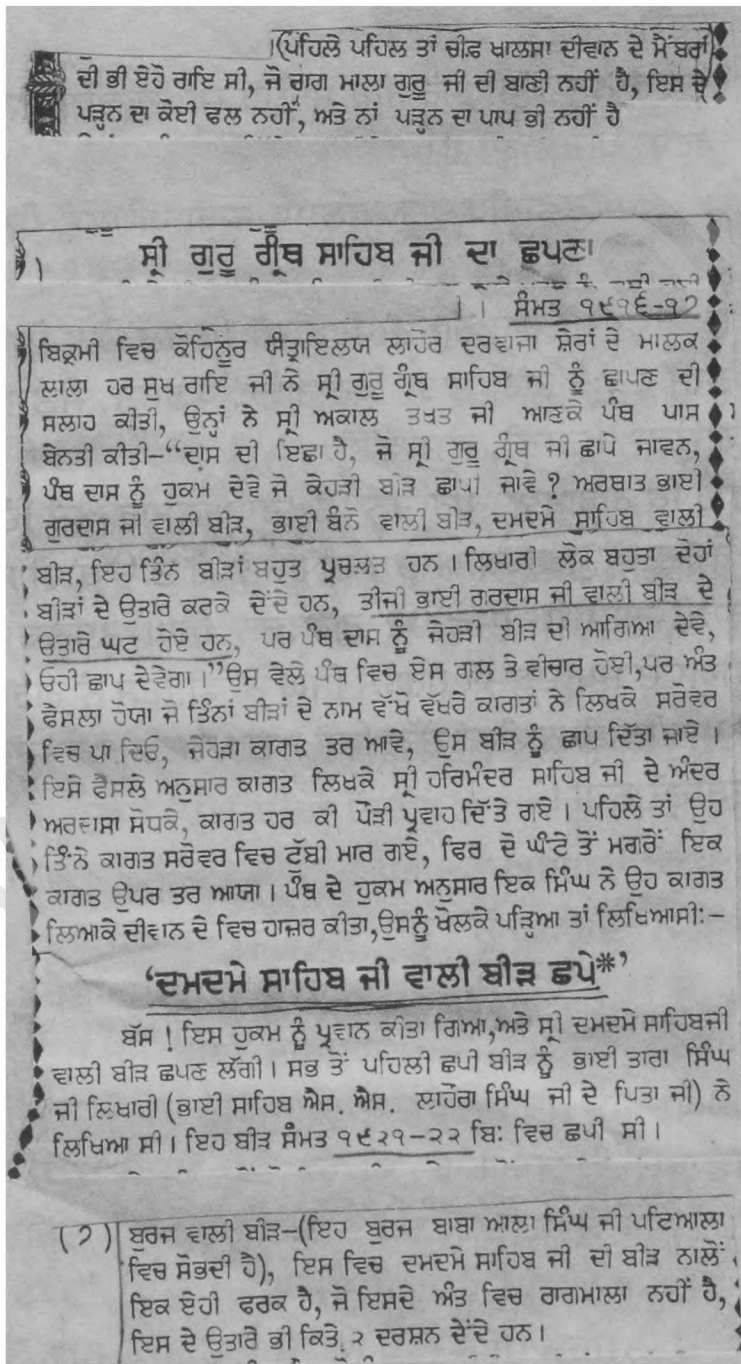 (ਪਹਿਲੇ ਪਹਿਲ ਤਾਂ ਚੀਫ਼ ਖਾਲਸਾ ਦੀਵਾਨ ਦੇ ਮੈਂਬਰਾਂ
ਦੀ ਭੀ ਏਹੋ ਰਾਇ ਸੀ, ਜੋ ਰਾਗ ਮਾਲਾ ਗੁਰੂ ਜੀ ਦੀ ਬਾਣੀ ਨਹੀਂ ਹੈ, ਇਸ ਦੇ
ਪੜ੍ਹਨ ਦਾ ਕੋਈ ਫਲ ਨਹੀਂ, ਅਤੇ ਨਾਂ ਪੜ੍ਹਨ ਦਾ ਪਾਪ ਭੀ ਨਹੀਂ ਹੈ
ਸ੍ਰੀ ਗੁਰੂ ਗ੍ਰੰਥ ਸਾਹਿਬ ਜੀ ਦਾ ਛਪਣਾ
ਸੰਮਤ ੧੯੧੬-੧੭
ਬਿਕ੍ਰਮੀ ਵਿਚ ਕੋਹਿਨੂਰ ਯੰਤ੍ਰਾਇਲਯ ਲਾਹੌਰ ਦਰਵਾਜਾ ਸ਼ੇਰਾਂ ਦੇ ਮਾਲਕ
ਲਾਲਾ ਹਰ ਸੁਖ ਰਾਇ ਜੀ ਨੇ ਸ੍ਰੀ ਗੁਰੂ ਗ੍ਰੰਥ ਸਾਹਿਬ ਜੀ ਨੂੰ ਛਾਪਣ ਦੀ
ਸਲਾਹ ਕੀਤੀ, ਉਨ੍ਹਾਂ ਨੇ ਸ੍ਰੀ ਅਕਾਲ ਤਖਤ ਜੀ ਆਣਕੇ ਪੰਥ ਪਾਸ
ਬੇਨਤੀ ਕੀਤੀ-“ਦਾਸ ਦੀ ਇਛਾ ਹੈ, ਜੋ ਸ੍ਰੀ ਗੁਰੂ ਗ੍ਰੰਥ ਜੀ ਛਾਪੇ ਜਾਵਨ,
ਪੰਥ ਦਾਸ ਨੂੰ ਹੁਕਮ ਦੇਵੇ ਜੋ ਕੇਹੜੀ ਬੀੜ ਛਾਪੀ ਜਾਵੇ ? ਅਰਥਾਤ ਭਾਈ
ਗੁਰਦਾਸ ਜੀ ਵਾਲੀ ਬੀੜ, ਭਾਈ ਬੰਨੋ ਵਾਲੀ ਬੀੜ, ਦਮਦਮੇ ਸਾਹਿਬ ਵਾਲੀ
ਬੀੜ, ਇਹ ਤਿੰਨ ਬੀੜਾਂ ਬਹੁਤ ਪ੍ਰਚਲਤ ਹਨ । ਲਿਖਾਰੀ ਲੋਕ ਬਹੁਤਾ ਦੋਹਾਂ
ਬੀੜਾਂ ਦੇ ਉਤਾਰੇ ਕਰਕੇ ਦੇਂਦੇ ਹਨ, ਤੀਜੀ ਭਾਈ ਗਰਦਾਸ ਜੀ ਵਾਲੀ ਬੀੜ ਦੇ
ਉਤਾਰੇ ਘਟ ਹੋਏ ਹਨ, ਪਰ ਪੰਥ ਦਾਸ ਨੂੰ ਜੇਹੜੀ ਬੀੜ ਦੀ ਆਗਿਆ ਦੇਵੇ,
ਓਹੀ ਛਾਪ ਦੇਵੇਗਾ।”ਉਸ ਵੇਲੇ ਪੰਥ ਵਿਚ ਏਸ ਗਲ ਤੇ ਵੀਚਾਰ ਹੋਈ,ਪਰ ਅੰਤ
ਫੈਸਲਾ ਹੋਯਾ ਜੋ ਤਿੰਨਾਂ ਬੀੜਾਂ ਦੇ ਨਾਮ ਵੱਖੋ ਵੱਖਰੇ ਕਾਗਤਾਂ ਨੇ ਲਿਖਕੇ ਸਰੋਵਰ
ਵਿਚ ਪਾ ਦਿਓ, ਜੇਹੜਾ ਕਾਗਤ ਤਰ ਆਵੇ, ਉਸ ਬੀੜ ਨੂੰ ਛਾਪ ਦਿੱਤਾ ਜਾਏ ।
ਇਸੇ ਫੈਸਲੇ ਅਨੁਸਾਰ ਕਾਗਤ ਲਿਖਕੇ ਸ੍ਰੀ ਹਰਿਮੰਦਰ ਸਾਹਿਬ ਜੀ ਦੇ ਅੰਦਰ
ਅਰਦਾਸਾ ਸੋਧਕੇ, ਕਾਗਤ ਹਰ ਕੀ ਪੌੜੀ ਪ੍ਰਵਾਹ ਦਿੱਤੇ ਗਏ । ਪਹਿਲੇ ਤਾਂ ਉਹ
ਤਿੰਨੇ ਕਾਗਤ ਸਰੋਵਰ ਵਿਚ ਟੁੱਬੀ ਮਾਰ ਗਏ, ਫਿਰ ਦੋ ਘੰਟੇ ਤੋਂ ਮਗਰੋਂ ਇਕ
ਕਾਗਤ ਉਪਰ ਤਰ ਆਯਾ। ਪੰਥ ਦੇ ਹੁਕਮ ਅਨੁਸਾਰ ਇਕ ਸਿੰਘ ਨੇ ਉਹ ਕਾਗਤ
ਲਿਆਕੇ ਦੀਵਾਨ ਦੇ ਵਿਚ ਹਾਜ਼ਰ ਕੀਤਾ,ਉਸਨੂੰ ਖੋਲਕੇ ਪੜ੍ਹਿਆ ਤਾਂ ਲਿਖਿਆਸੀ:-
‘ਦਮਦਮੇ ਸਾਹਿਬ ਜੀ ਵਾਲੀ ਬੀੜ ਛਪੇ*’
ਬੱਸ ! ਇਸ ਹੁਕਮ ਨੂੰ ਪ੍ਰਵਾਨ ਕੀਤਾ ਗਿਆ,ਅਤੇ ਸ੍ਰੀ ਦਮਦਮੇ ਸਾਹਿਬਜੀ
ਵਾਲੀ ਬੀੜ ਛਪਣ ਲੱਗੀ। ਸਭ ਤੋਂ ਪਹਿਲੀ ਛਪੀ ਬੀੜ ਨੂੰ ਭਾਈ ਤਾਰਾ ਸਿੰਘ
ਜੀ ਲਿਖਾਰੀ (ਭਾਈ ਸਾਹਿਬ ਐਸ. ਐਸ. ਲਾਹੌਰਾ ਸਿੰਘ ਜੀ ਦੇ ਪਿਤਾ ਜੀ) ਨੇ
ਲਿਖਿਆ ਸੀ। ਇਹ ਬੀੜ ਸੰਮਤ ੧੯੨੧-੨੨ ਬਿ: ਵਿਚ ਛਪੀ ਸੀ।
(੭) ਬੁਰਜ ਵਾਲੀ ਬੀੜ-(ਇਹ ਬੁਰਜ ਬਾਬਾ ਆਲਾ ਸਿੰਘ ਜੀ ਪਟਿਆਲਾ
ਵਿਚ ਸੋਭਦੀ ਹੈ), ਇਸ ਵਿਚ ਦਮਦਮੇ ਸਾਹਿਬ ਜੀ ਦੀ ਬੀੜ ਨਾਲੋਂ
ਇਕ ਏਹੀ ਫਰਕ ਹੈ, ਜੋ ਇਸਦੇ ਅੰਤ ਵਿਚ ਰਾਗਮਾਲਾ ਨਹੀਂ ਹੈ,
ਇਸ ਦੇ ਉਤਾਰੇ ਭੀ ਕਿਤੇ ੨ ਦਰਸ਼ਨ ਦੇਂਦੇ ਹਨ।